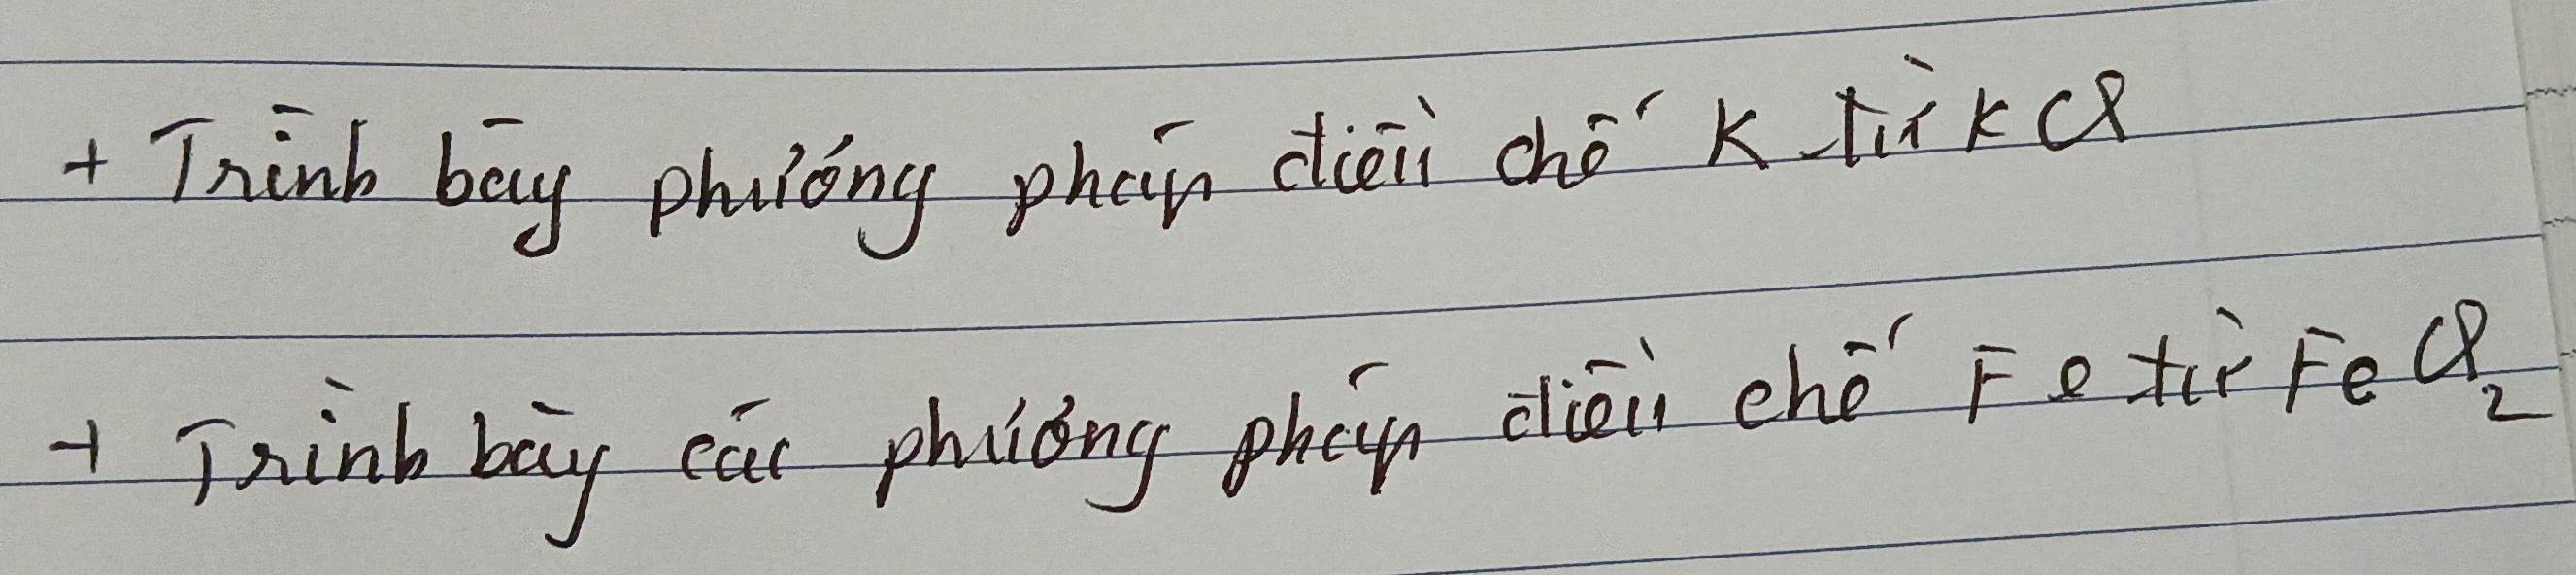 + Trình bày phương pháp điều chế K từ KCl
+ Trình bày các phương pháp điều chế Fe từ FeCl₂